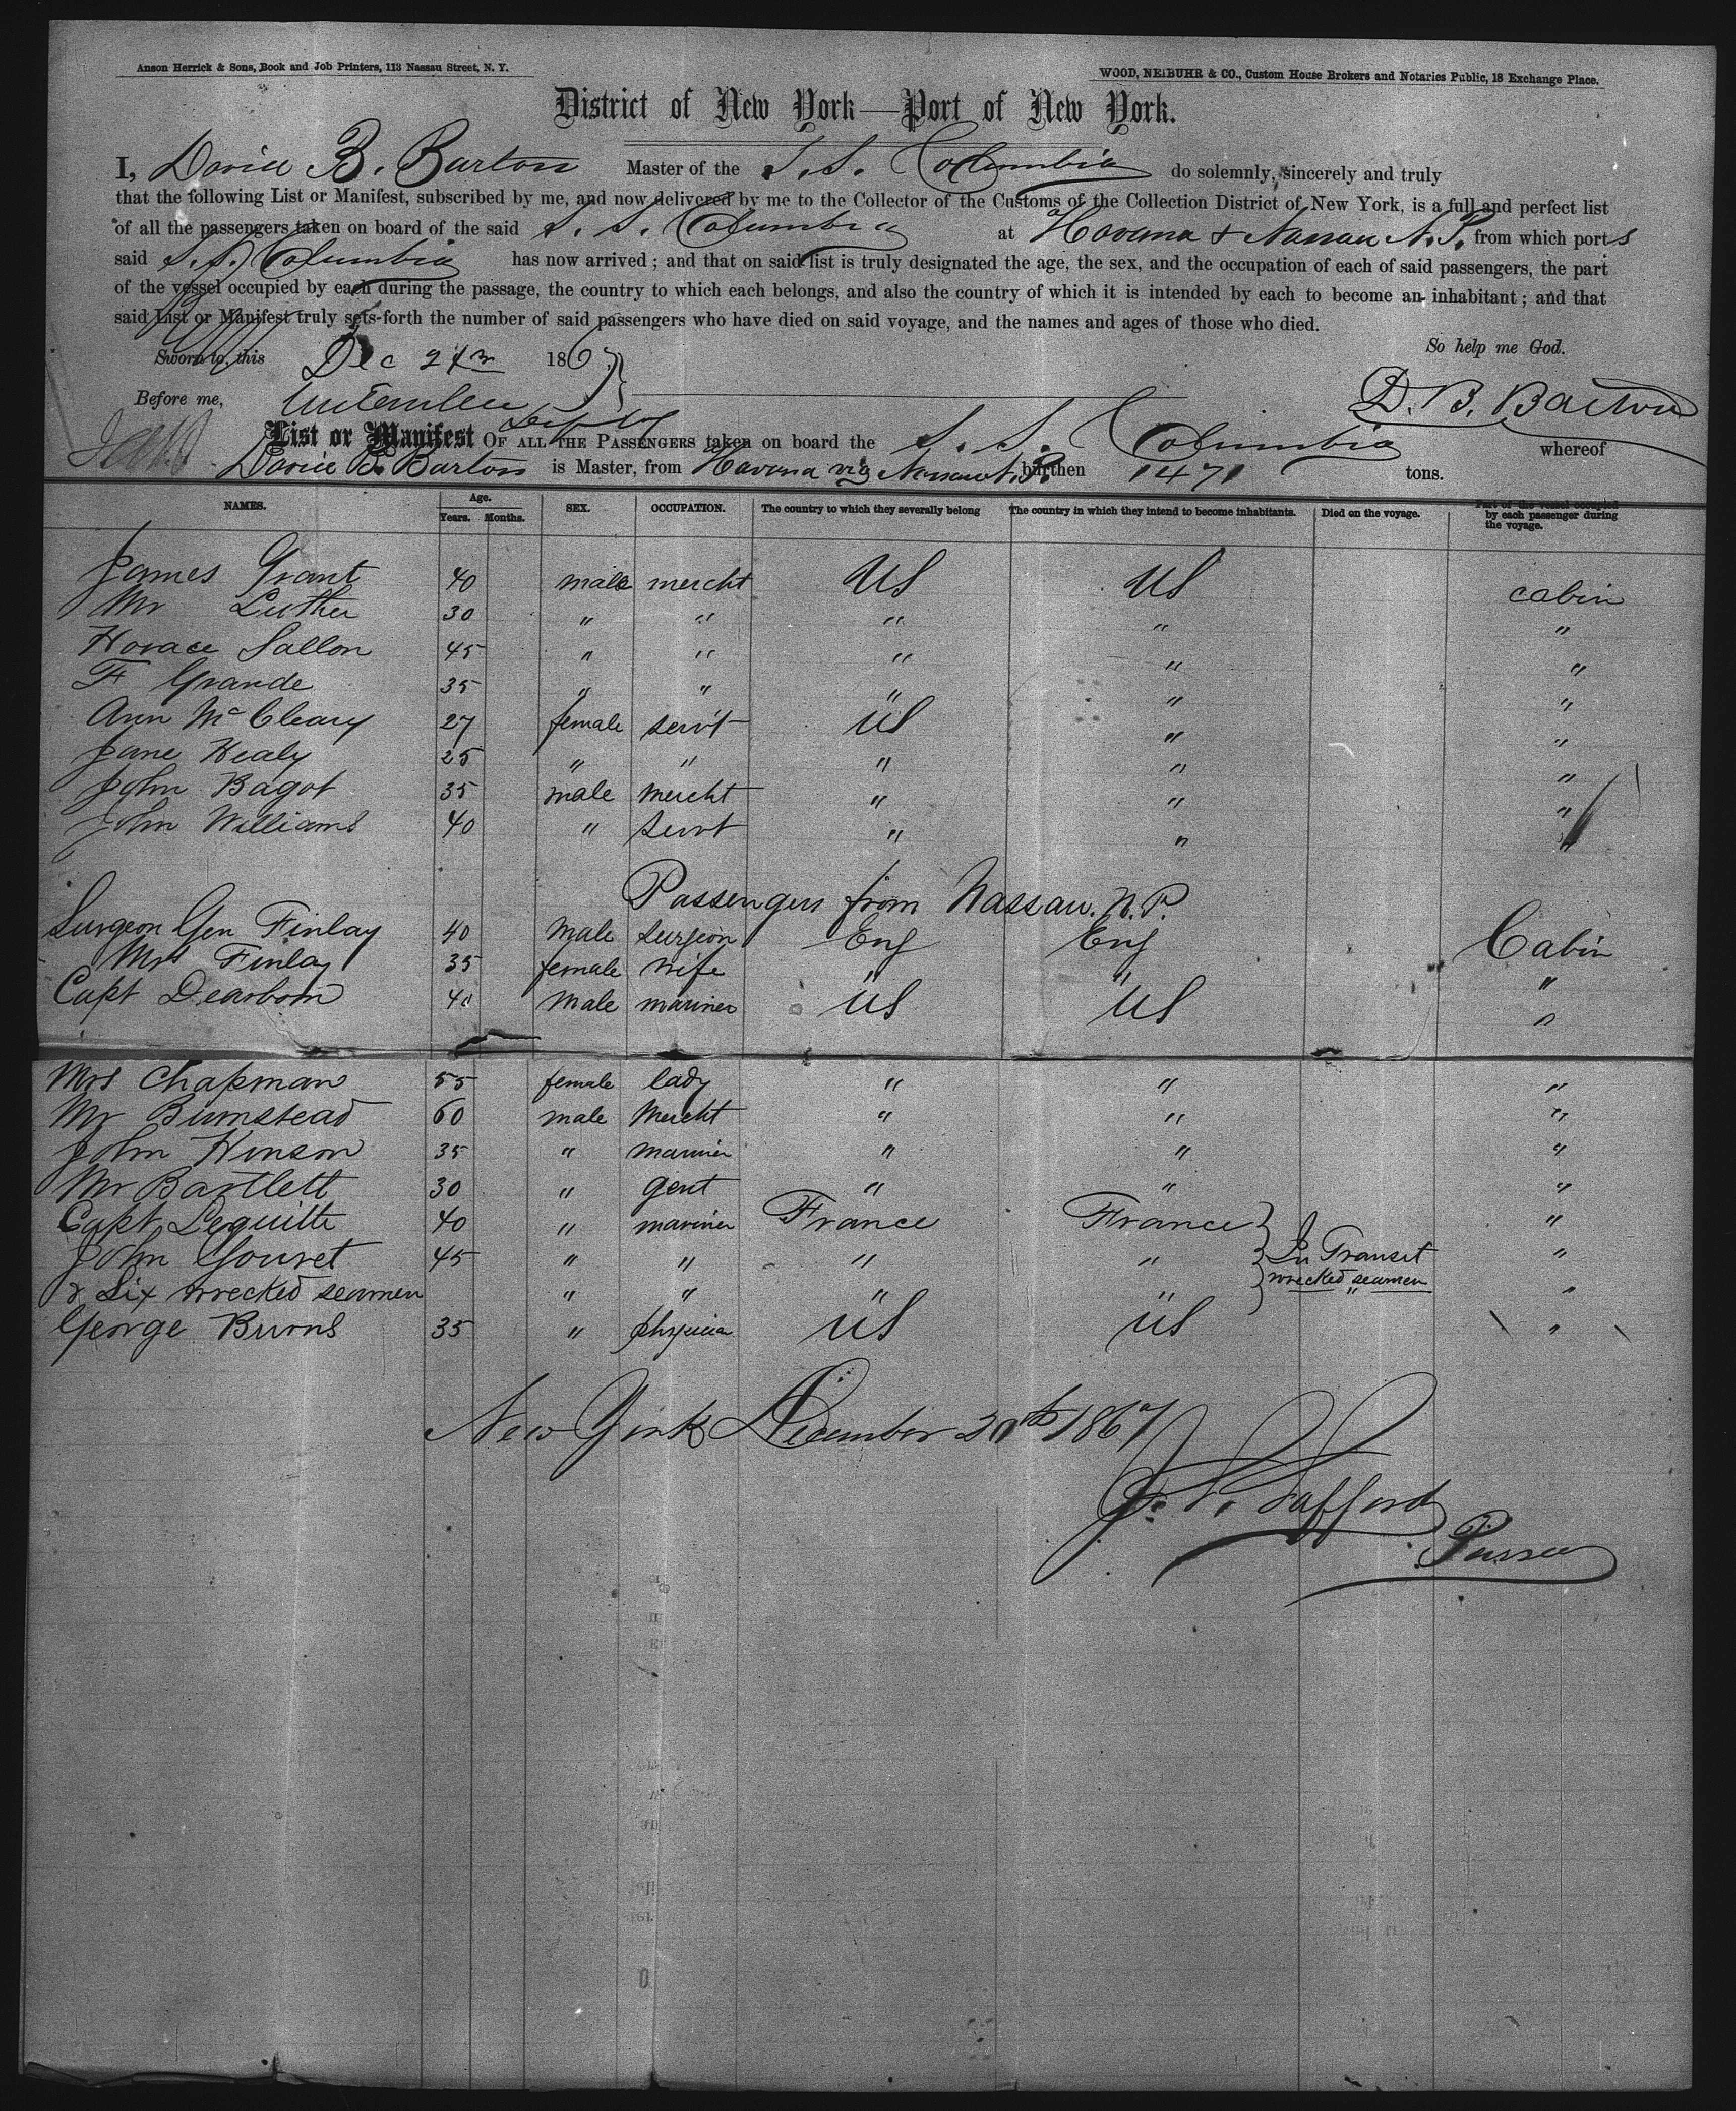 Anson Herrick & Sons, Book and Job Printers, 113 Nassau Street, N. Y.
WOOD, NEIBUHR & CO., Custom House Brokers and Notaries Public, 18 Exchange Place.
District of New York—Port of New York.
I, David B. Barton Master of the S.S. Columbia do solemnly, sincerely and truly
that the following List or Manifest, subscribed by me, and now delivered by me to the Collector of the Customs of the Collection District of New York, is a full and perfect list
of all the passengers taken on board of the said S. S. Columbia at Havana & Nassau N.P. from which ports
said S.S. Columbia has now arrived ; and that on said list is truly designated the age, the sex, and the occupation of each of said passengers, the part
of the vessel occupied by each during the passage, the country to which each belongs, and also the country of which it is intended by each to become an inhabitant ; and that
said List or Manifest truly sets-forth the number of said passengers who have died on said voyage, and the names and ages of those who died.
So help me God.
Sworn to, this Dec 1867
Before me, D. B. Barton
Depty
List or Manifest OF ALL THE PASSENGERS taken on board the S. S. Columbia whereof
David B. Barton is Master, from Havana via Nassau N.P. burthen 1471 tons.
NAMES. Age. Years. Months. SEX. OCCUPATION. The country to which they severally belong The country in which they intend to become inhabitants. Died on the voyage. Part of the vessel occupied by each passenger during the voyage.
James Grant 40 male mercht US US cabin
Mr Luther 30 " " " " "
Horace Sallon 45 " " " " "
F Grande 35 " " " " "
Ann McCleary 27 female servt US " "
Jane Healy 25 " " " " "
John Bagot 35 male mercht " " "
John Williams 40 " servt " " "
Passengers from Nassau. N.P.
Surgeon Gen Finlay 40 male surgeon Eng Eng Cabin
Mrs Finlay 35 female wife " " "
Capt Dearborn 40 male mariner US US "
Mrs Chapman 55 female lady " " "
Mr Bumstead 60 male mercht " " "
John Hinson 35 " mariner " " "
Mr Bartlett 30 " gent " " "
Capt Lequitte 40 " mariner France France "
John Gouret 45 " " " " In Transit "
& Six wrecked seamen " " " " wrecked seamen "
George Burns 35 " physician US US "
New York December 20th 1867
J. S. Safford
Purser